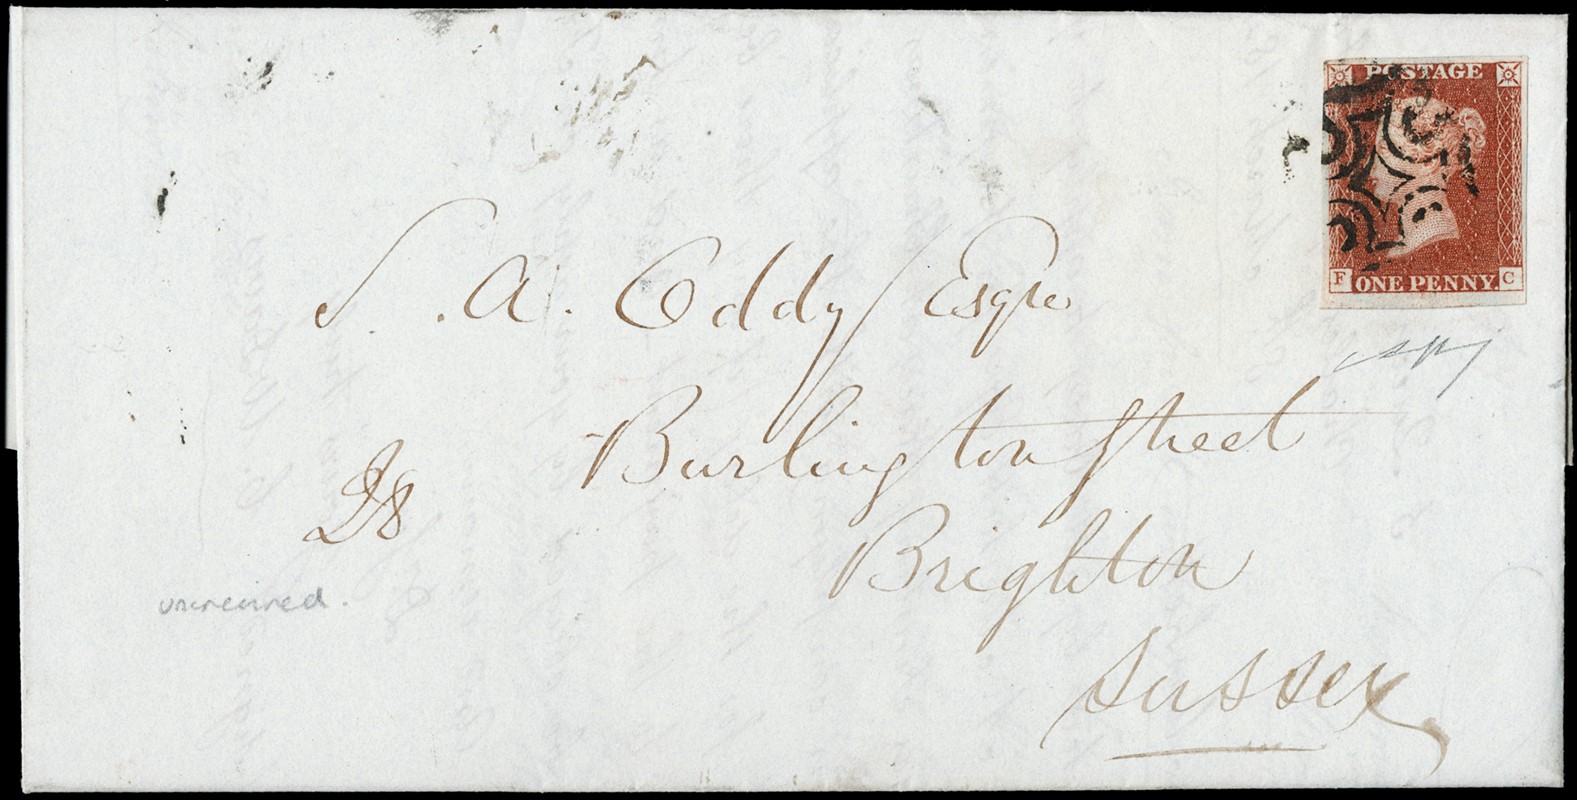 POSTAGE
F ONE PENNY C
S. A. Oddy Esqre
Burlington Street
Brighton
Sussex